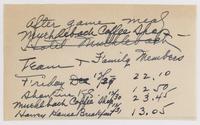 After game meal
Muehlebach Coffee Shop
Hotel Muehlebach —
Team + Family Members
Friday Dec 12/29 22.10
12.50
Muehlebach Coffee Shop 12/30 23.45
Harvey House Breakfast 13.05